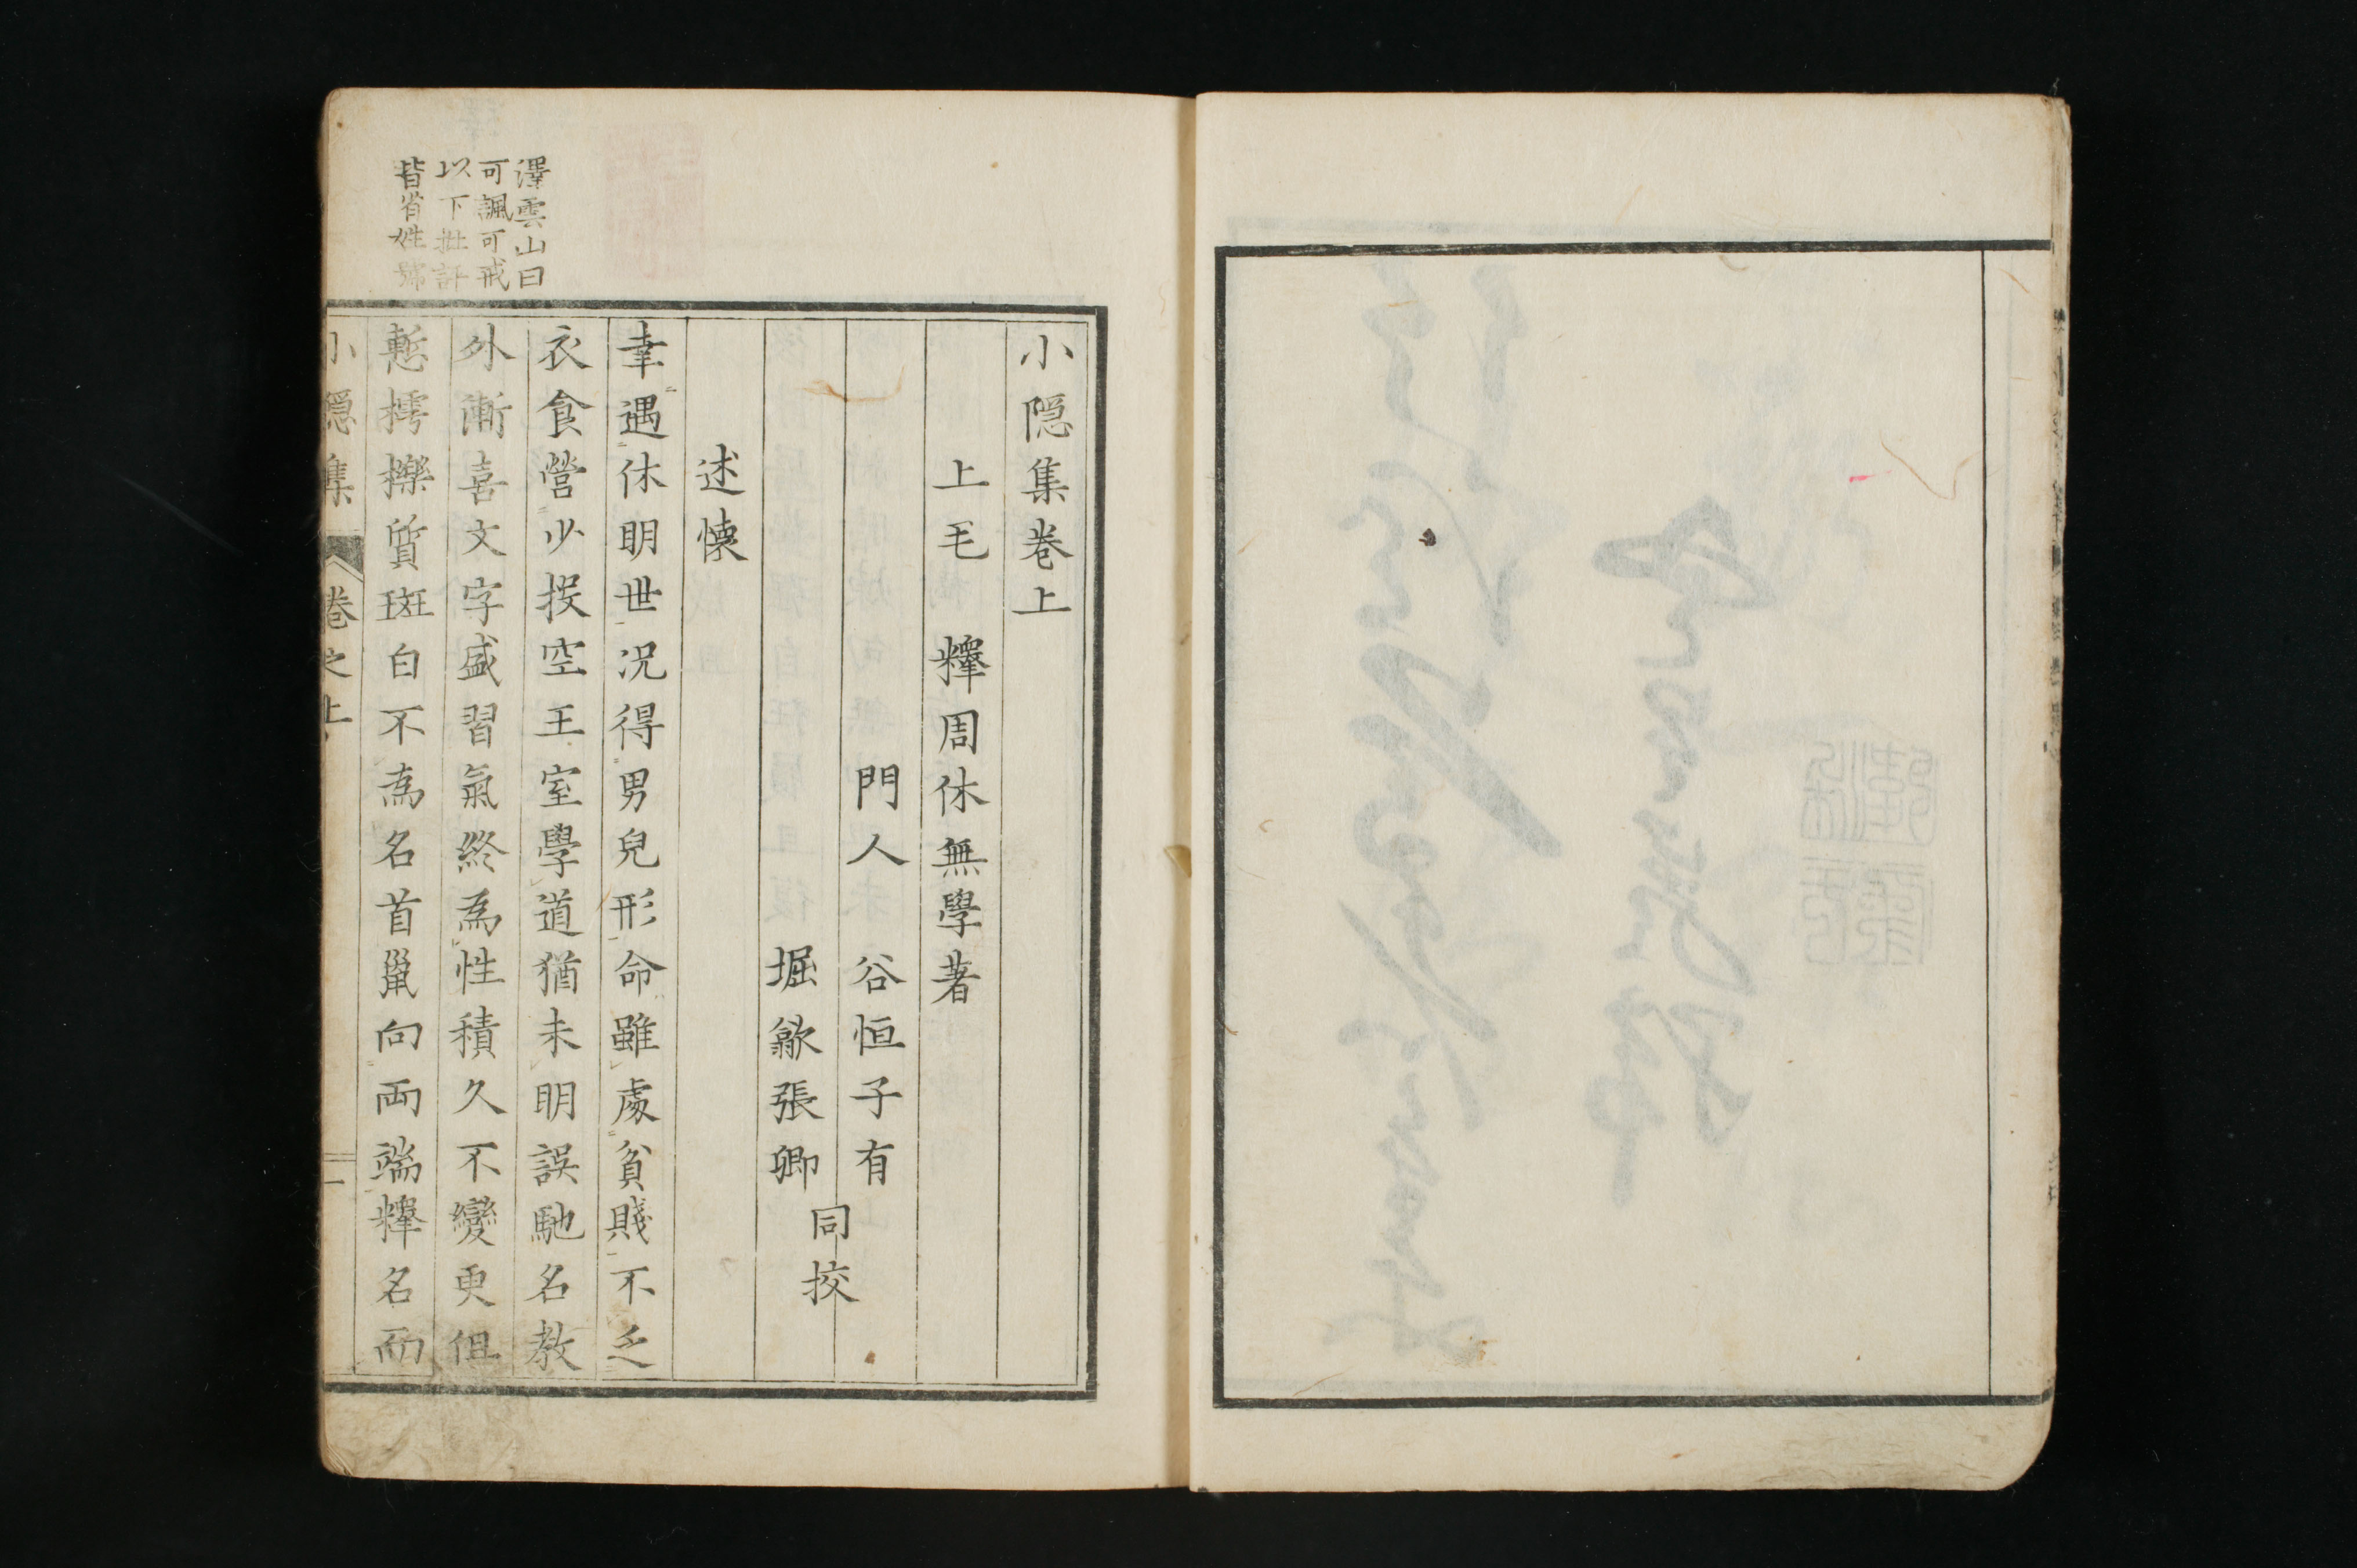 小隱集卷上
上毛　釋周休無學著
門人　谷恒子有
堀歙張卿
同挍
述懷
幸遇休明世况得男兒形命雖處貧賤不乏
衣食營少投空王室學道猶未明誤馳名教
外漸喜文字盛習氣終為性積久不變更但
慙樗櫟質斑白不為名首鼠向兩端釋名而
小隱集　卷之上　一
澤雲山曰
可諷可戒
以下批評
皆省姓號